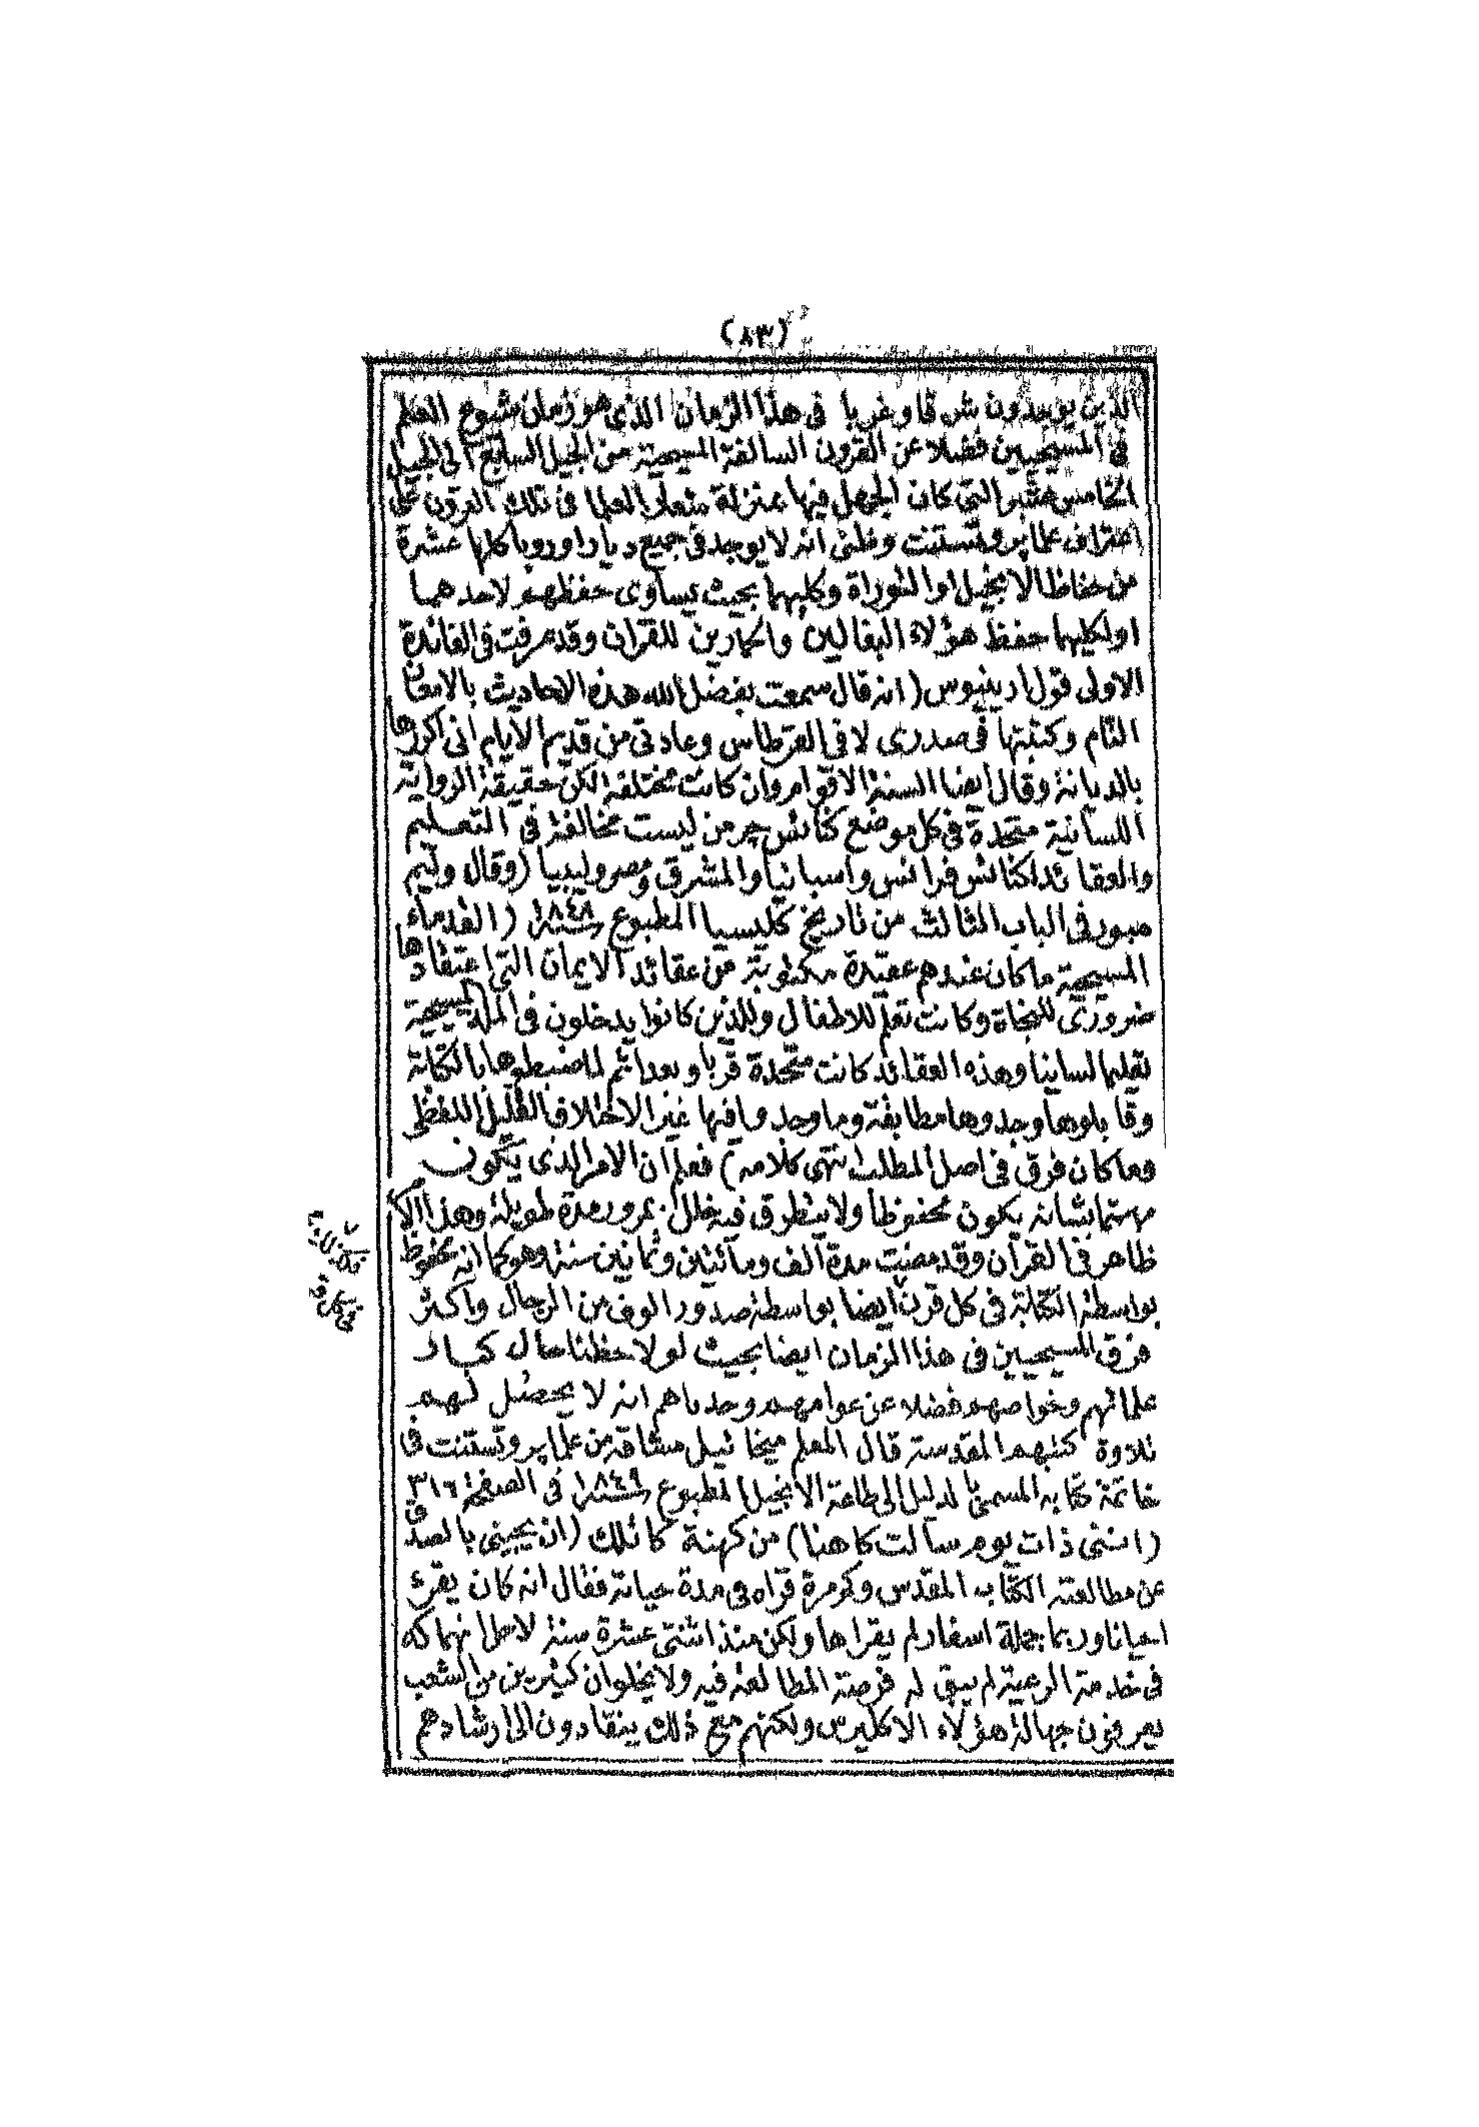 (٨٣)
الذين يوجدون شرقا وغربا في هذا الزمان الذي هو زمان شيوع العلم
في المسيحيين فضلا عن القرون السالفة المسيحية من الجيل السابع الى الجيل
الخامس عشر التي كان الجهل فيها بمنزلة شعار العلما في تلك القرون على
اعتراف علما پروتستنت وظني انه لا يوجد في جميع ديار اوروپا كلها عشرة
من حفاظ الانجيل او التوراة وكليهما بحيث يساوى حفظهم لاحدهما
او لكليهما حفظ هؤلاء البغالين والحمارين للقران وقد عرفت في الفائدة
الاولى قول ارينيوس (انه قال سمعت بفضل الله هذه الاحاديث بالامعان
التام وكتبتها في صدرى لا في القرطاس وعادتي من قديم الايام اني اكررها
بالديانة وقال ايضا السنة الاقوام وان كانت مختلفة لكن حقيقة الرواية
اللسانية متحدة في كل موضع كنائس جرمن ليست مخالفة في التعليم
والعقائد لكنائس فرانس واسبانيا والمشرق ومصر وليبيا (وقال وليم
ميور في الباب الثالث من تاريخ كليسيا المطبوع سنة ١٨٤٨ (القدماء
المسيحية ما كان عندهم عقيدة مكتوبة من عقائد الايمان التي اعتقادها
ضرورى للنجاة وكانت تعلم للاطفال وللذين كانوا يدخلون في الملة المسيحية
تعليما لسانيا وهذه العقائد كانت متحدة قربا وبعدا ثم لما ضبطوها بالكتابة
وقابلوها وجدوها مطابقة وما وجدوا فيها غير الاختلاف القليل اللفظي
وما كان فرق في اصل المطلب انتهى كلامه) فعلم ان الامر الذى يكون
مهتما بشانه يكون محفوظا ولا يتطرق فيه خلل بمرور مدة طويلة وهذا الا
ظاهر في القرآن وقد مضت مدة الف ومائتين وثمانين سنة وهو كما انه محفوظ
بواسطة الكتابة في كل قرن ايضا بواسطة صدور الوف من الرجال واكثر
فرق المسيحيين في هذا الزمان ايضا بحيث لو لاحظنا حال كبار
علمائهم وخواصهم فضلا عن عوامهم وجدناهم انه لا يحصل لهم
تلاوة كتبهم المقدسة قال المعلم ميخائيل مشاقة من علما پروتستنت في
خاتمة كتابه المسمى بالدليل الى طاعة الانجيل المطبوع سنة ١٨٤٩ في الصفحة ٣١٦
(انني ذات يوم سالت كاهنا) من كهنة كاتلك (ان يجيبني بالصدق
عن مطالعته الكتاب المقدس وكم مرة قراه في مدة حياته فقال انه كان يقرئ
احيانا وربما جملة اسفار لم يقراها ولكن منذ اثنتى عشرة سنة لاجل انهماكه
في خدمة الرعية لم يبقى له فرصة المطالعة فيه ولا يخلو ان كثيرين من الشعب
يعرفون جهالة هؤلاء الاكليرس ولكنهم مع ذلك ينقادون الى ارشادهم